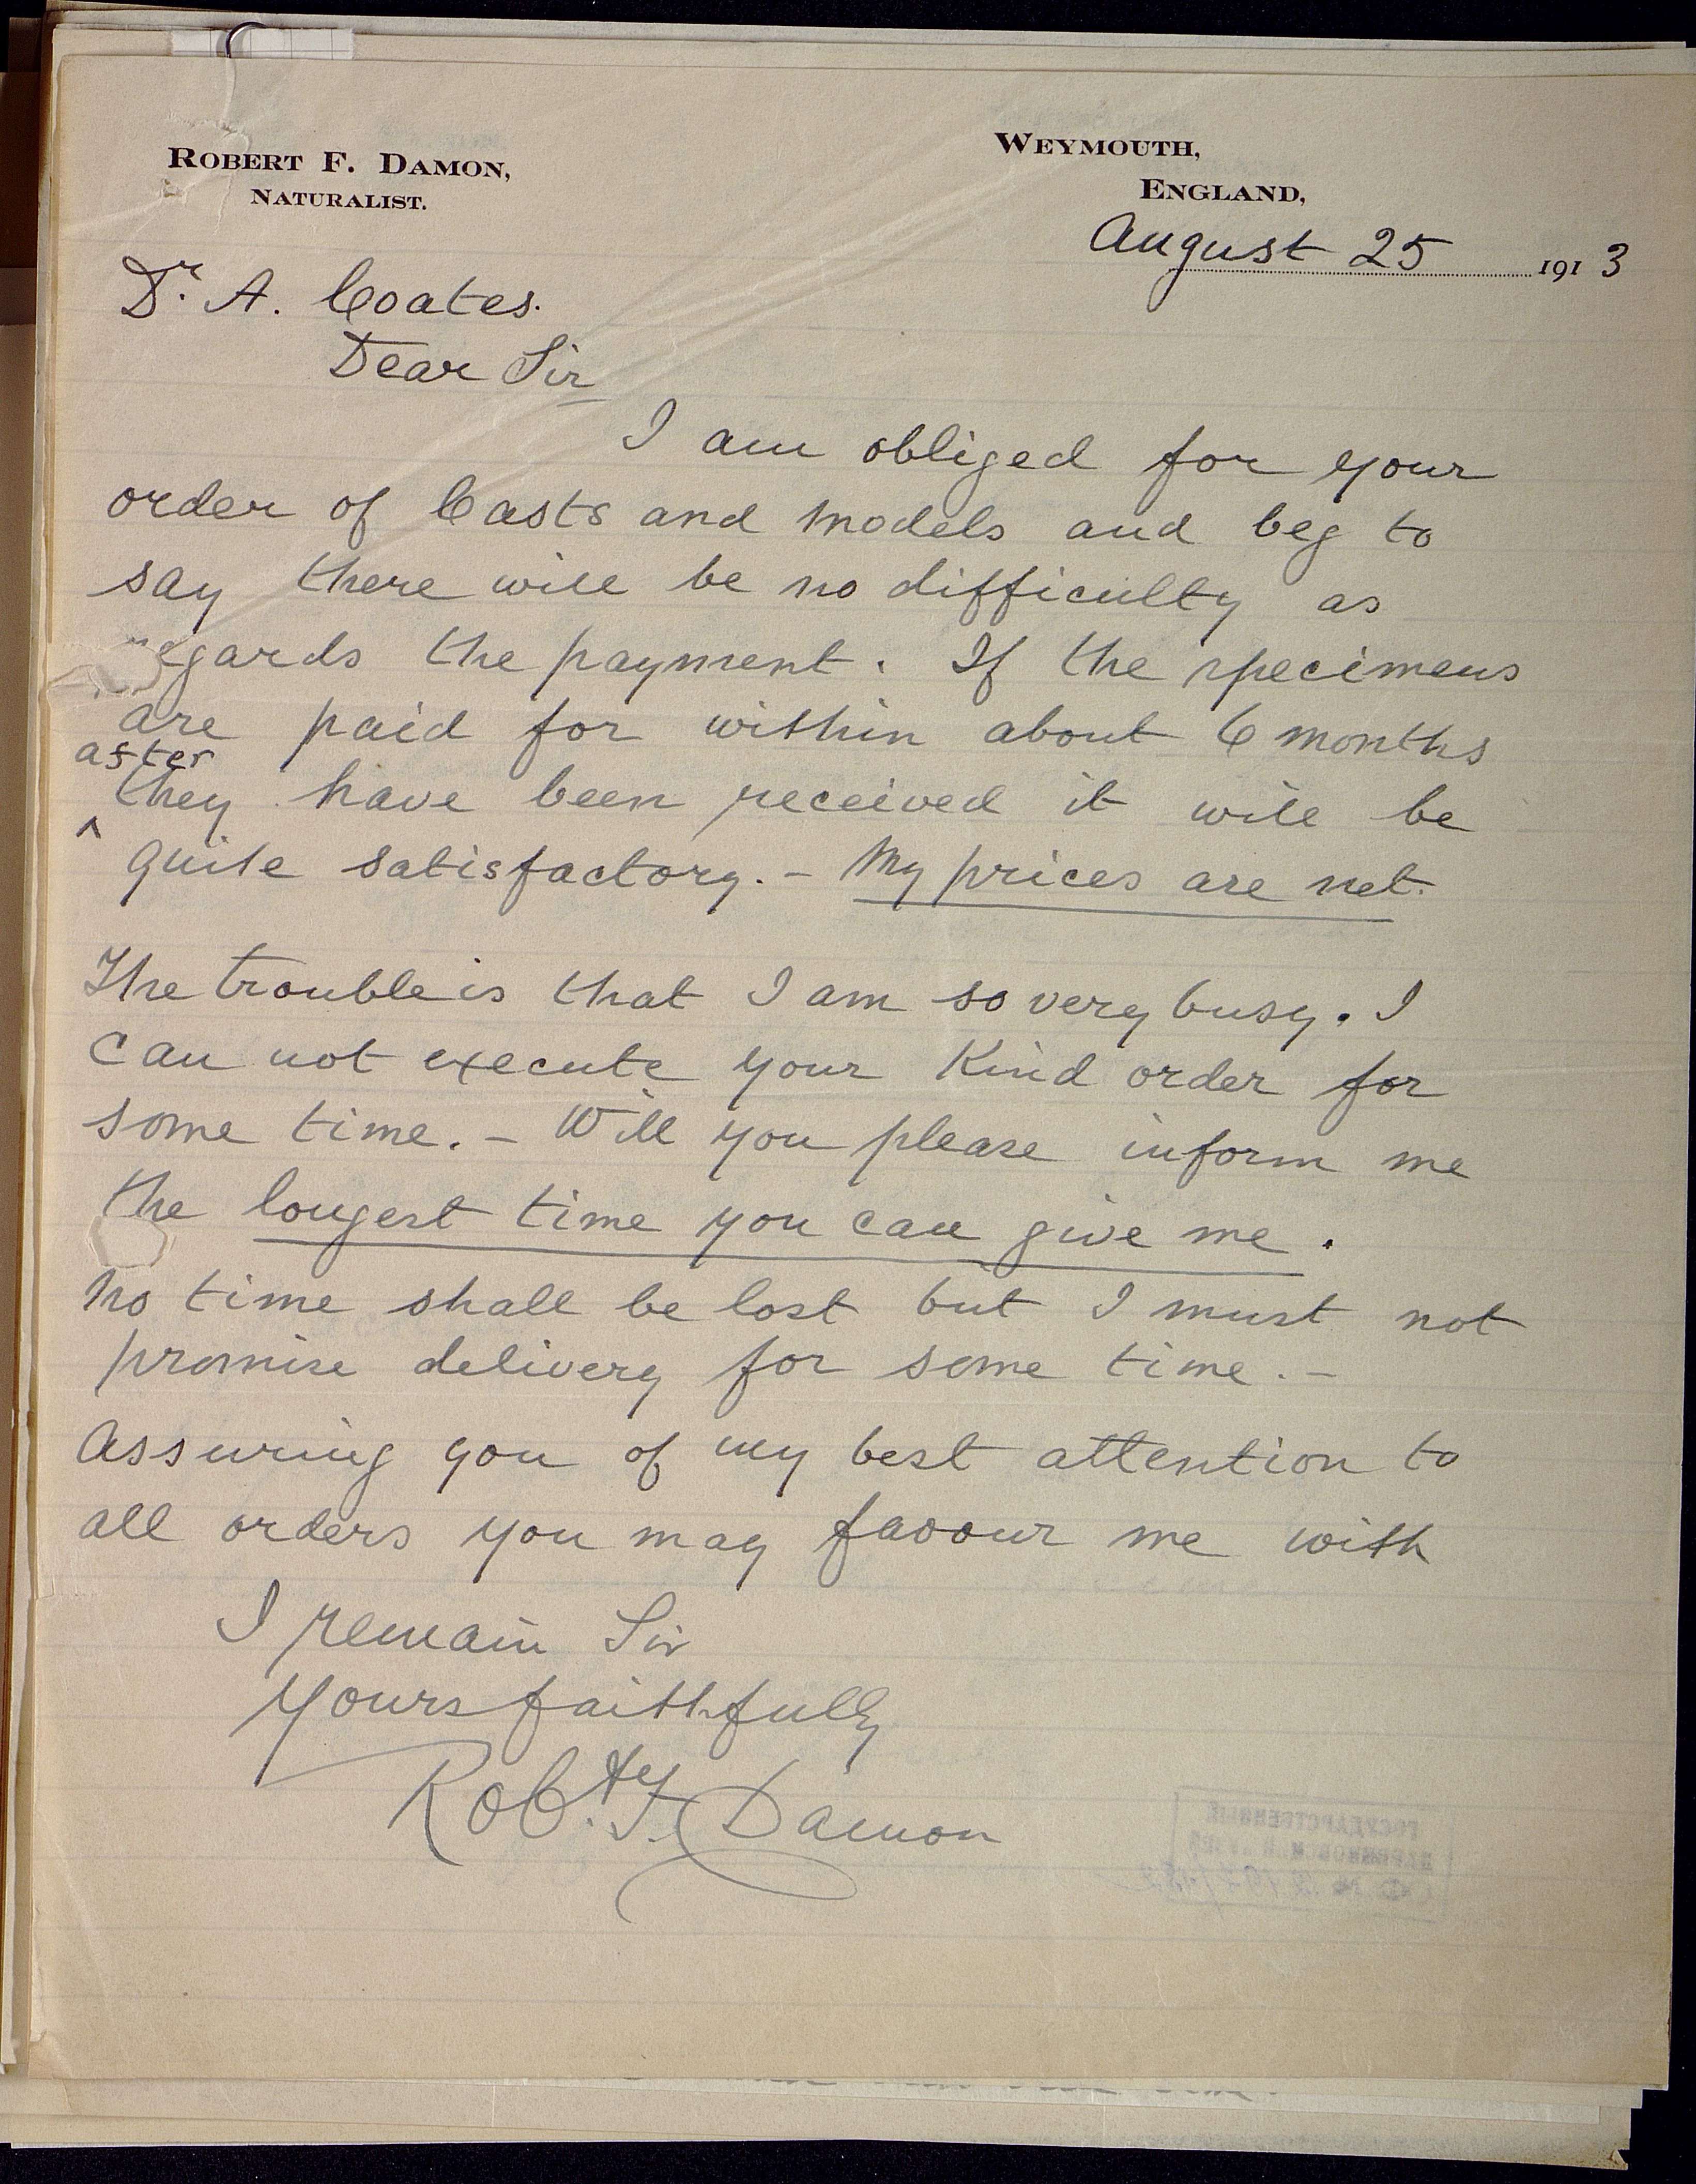 ROBERT F. DAMON,
NATURALIST.
WEYMOUTH,
ENGLAND,
August 25 1913
Dr. A. Coates.
Dear Sir
I am obliged for your
order of Casts and models and beg to
say there will be no difficulty as
regards the payment. If the specimens
are paid for within about 6 months
after
they have been received it will be
^
quite satisfactory. – My prices are net.
The trouble is that I am so very busy. I
can not execute your Kind order for
some time. – Will you please inform me
the longest time you can give me.
No time shall be lost but I must not
promise delivery for some time. –
Assuring you of my best attention to
all orders you may favour me with
I remain Sir
yours faithfully
Robt. F. Damon
ГОСУДАРСТВЕННЫЙ